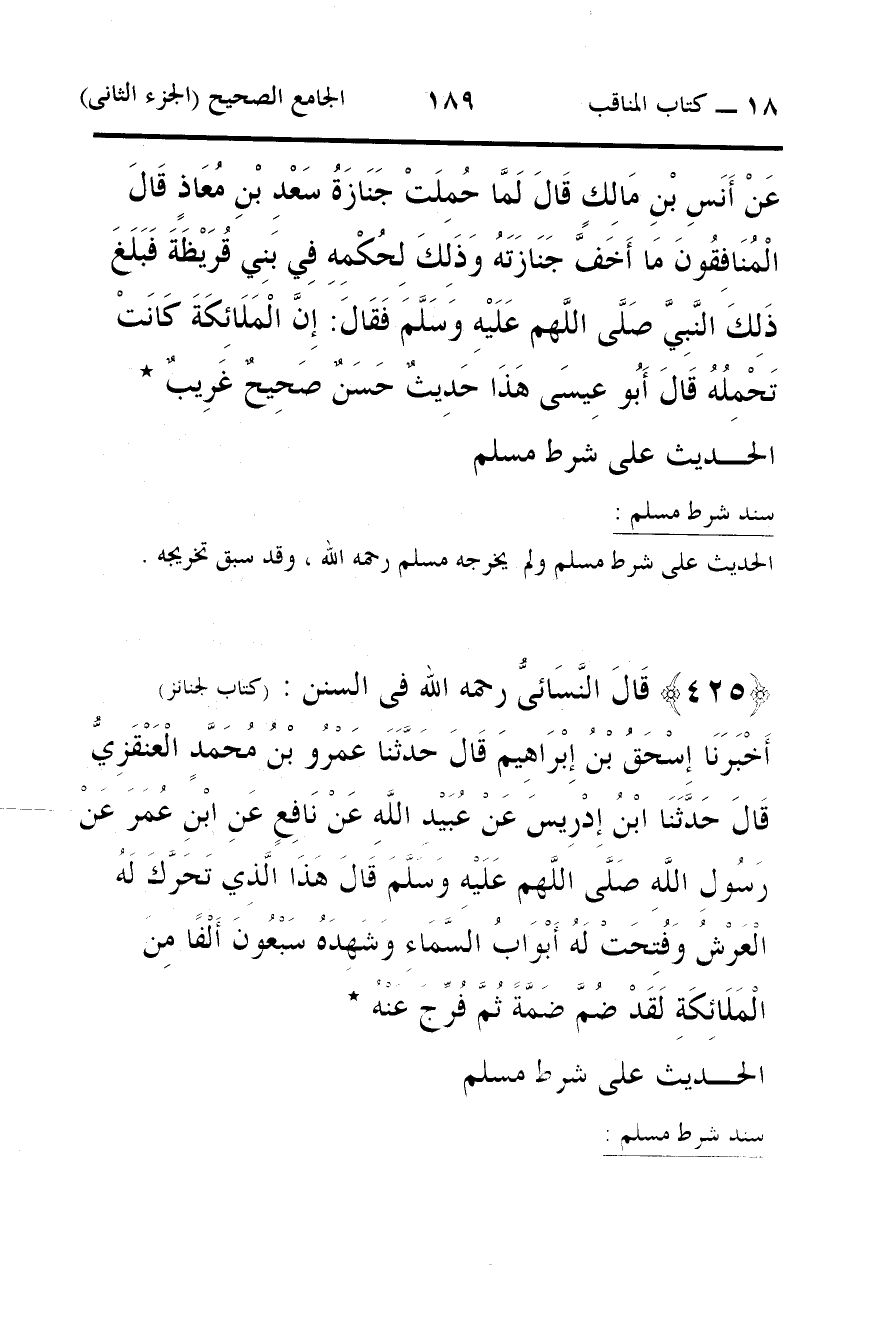 ١٨ ــ كتاب المناقب ١٨٩ الجامع الصحيح (الجزء الثانى)
عَنْ أَنَسِ بْنِ مَالِكٍ قَالَ لَمَّا حُمِلَتْ جَنَازَةُ سَعْدِ بْنِ مُعَاذٍ قَالَ
الْمُنَافِقُونَ مَا أَخَفَّ جَنَازَتَهُ وَذَلِكَ لِحُكْمِهِ فِي بَنِي قُرَيْظَةَ فَبَلَغَ
ذَلِكَ النَّبِيَّ صَلَّى اللهم عَلَيْهِ وَسَلَّمَ فَقَالَ: إِنَّ الْمَلَائِكَةَ كَانَتْ
تَحْمِلُهُ قَالَ أَبُو عِيسَى هَذَا حَدِيثٌ حَسَنٌ صَحِيحٌ غَرِيبٌ *
الحـــديث على شرط مسلم
سند شرط مسلم :
الحديث على شرط مسلم ولم يخرجه مسلم رحمه الله ، وقد سبق تخريجه .
﴿٤٢٥﴾ قَالَ النَّسَائىُّ رحمه الله فى السنن : (كتاب لجنائز)
أَخْبَرَنَا إِسْحَقُ بْنُ إِبْرَاهِيمَ قَالَ حَدَّثَنَا عَمْرُو بْنُ مُحَمَّدٍ الْعَنْقَزِيُّ
قَالَ حَدَّثَنَا ابْنُ إِدْرِيسَ عَنْ عُبَيْدِ اللَّهِ عَنْ نَافِعٍ عَنِ ابْنِ عُمَرَ عَنْ
رَسُولِ اللَّهِ صَلَّى اللهم عَلَيْهِ وَسَلَّمَ قَالَ هَذَا الَّذِي تَحَرَّكَ لَهُ
الْعَرْشُ وَفُتِحَتْ لَهُ أَبْوَابُ السَّمَاءِ وَشَهِدَهُ سَبْعُونَ أَلْفًا مِنَ
الْمَلَائِكَةِ لَقَدْ ضُمَّ ضَمَّةً ثُمَّ فُرِّجَ عَنْهُ *
الحـــديث على شرط مسلم
سند شرط مسلم :